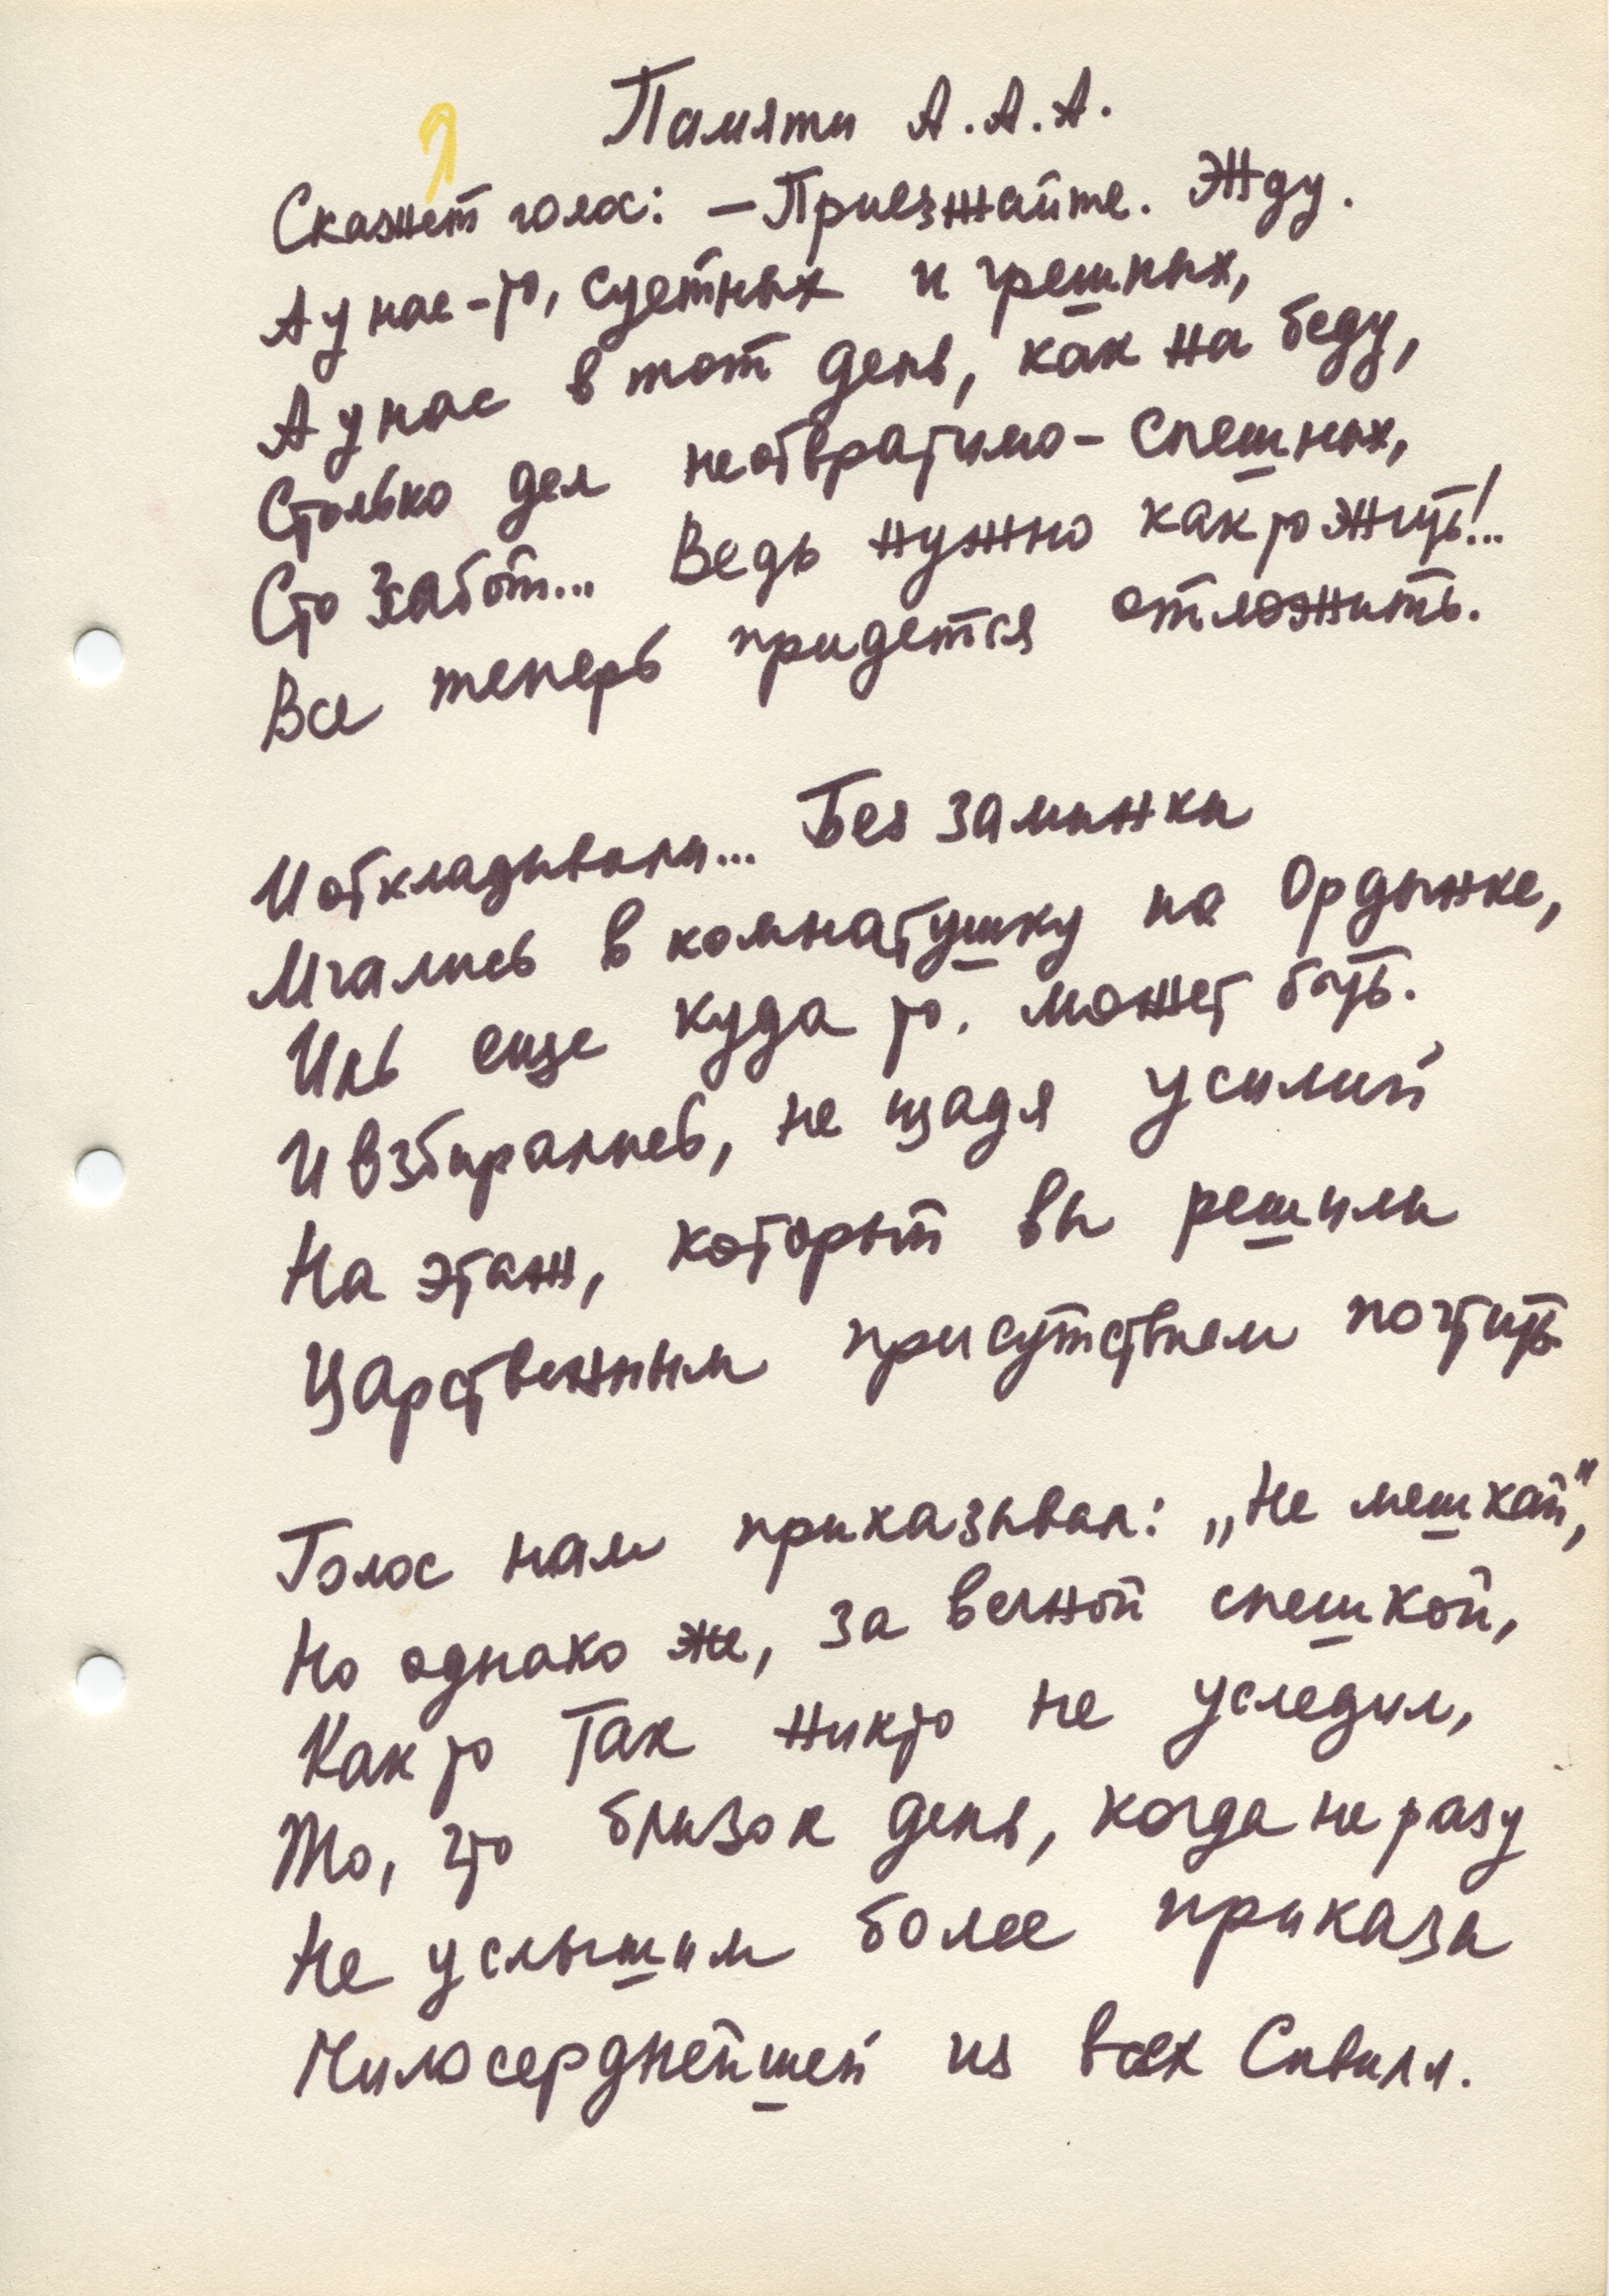 Памяти А.А.А.
Скажет голос: – Приезжайте. Жду.
А у нас-то, суетных и грешных,
А у нас в тот день, как на беду,
Столько дел неотвратимо-спешных,
Сто забот... Ведь нужно как то жить!..
Все теперь придется отложить.
И откладывали... Без заминки
Мчались в комнатушку на Ордынке,
Иль еще куда то. может быть.
И взбирались, не щадя усилий
На этаж, который вы решили
Царственным присутствием почтить.
Голос нам приказывал: „Не мешкай",
Но однако же, за вечной спешкой,
Как то так никто не уследил,
То, что близок день, когда ни разу
Не услышим более приказа
Милосерднейшей из всех Сивилл.